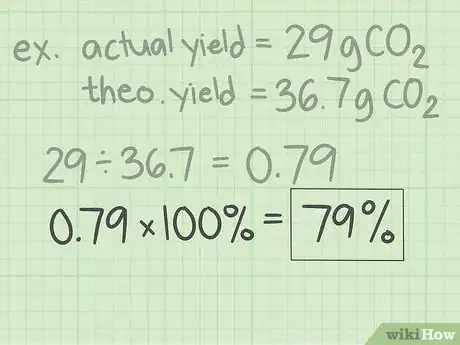 ex. actual yield = 29g CO₂
theo. yield = 36.7g CO₂
29 ÷ 36.7 = 0.79
0.79 × 100% = 79%
wikiHow